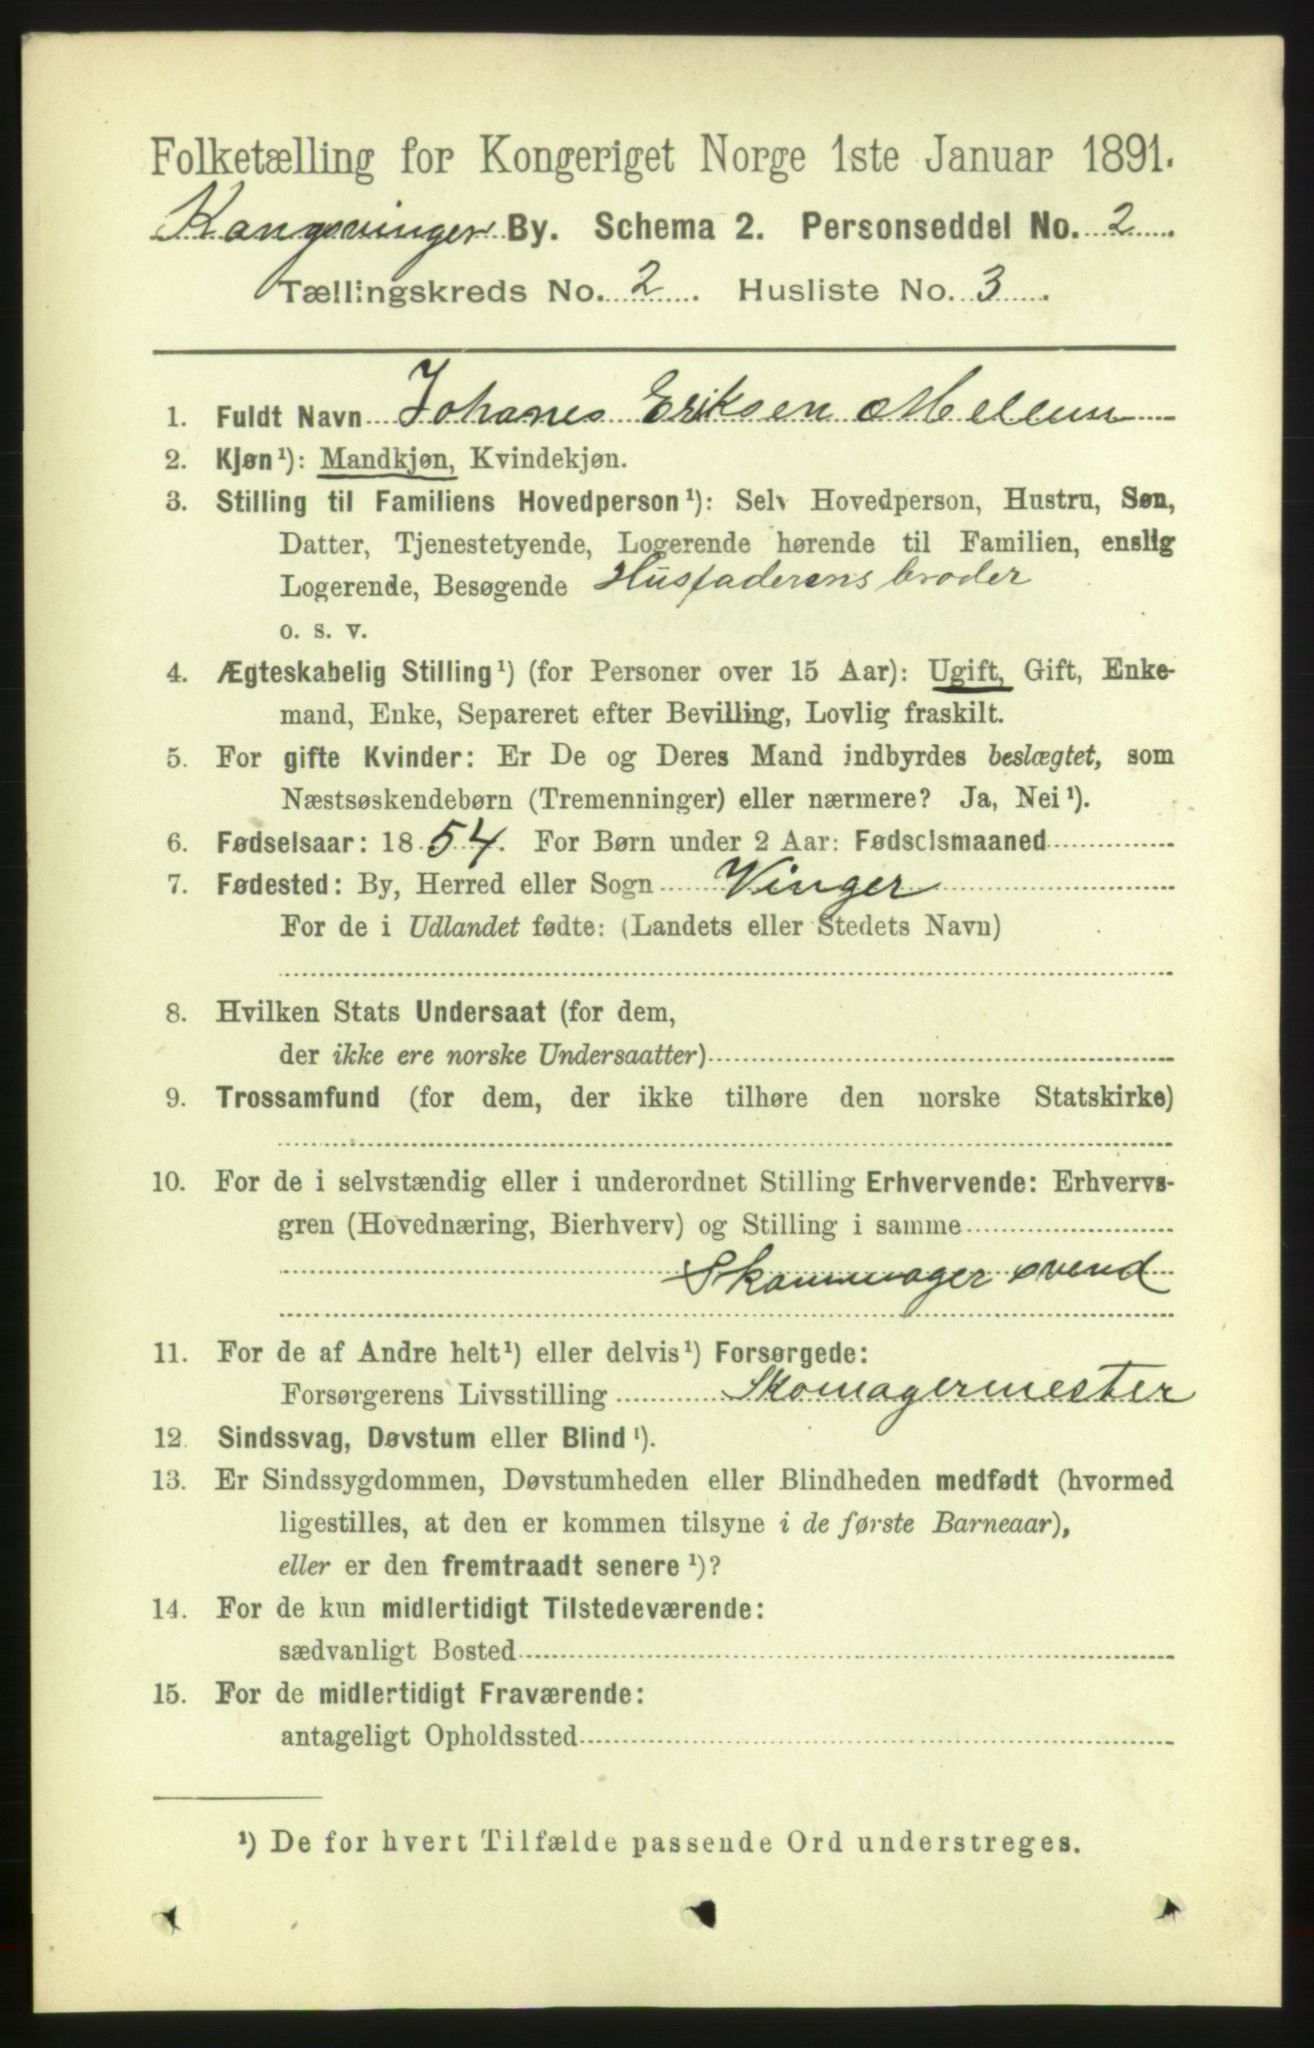 Folketælling for Kongeriget Norge 1ste Januar 1891.
Kongsvinger By. Schema 2. Personseddel No. 2
Tællingskreds No. 2. Husliste No. 3.
1. Fuldt Navn Johanes Eriksen Mellem
2. Kjøn¹): Mandkjøn, Kvindekjøn.
3. Stilling til Familiens Hovedperson¹): Selv Hovedperson, Hustru, Søn,
Datter, Tjenestetyende, Logerende hørende til Familien, enslig
Logerende, Besøgende Husfaderens broder
o. s. v.
4. Ægteskabelig Stilling¹) (for Personer over 15 Aar): Ugift, Gift, Enke-
mand, Enke, Separeret efter Bevilling, Lovlig fraskilt.
5. For gifte Kvinder: Er De og Deres Mand indbyrdes beslægtet, som
Næstsøskendebørn (Tremenninger) eller nærmere? Ja, Nei¹).
6. Fødselsaar: 1854. For Børn under 2 Aar: Fødselsmaaned
7. Fødested: By, Herred eller Sogn Vinger
For de i Udlandet fødte: (Landets eller Stedets Navn)
8. Hvilken Stats Undersaat (for dem,
der ikke ere norske Undersaatter)
9. Trossamfund (for dem, der ikke tilhøre den norske Statskirke)
10. For de i selvstændig eller i underordnet Stilling Erhvervende: Erhvervs-
gren (Hovednæring, Bierhverv) og Stilling i samme
Skommager svend
11. For de af Andre helt¹) eller delvis¹) Forsørgede:
Forsørgerens Livsstilling Skomagermester
12. Sindssvag, Døvstum eller Blind¹).
13. Er Sindssygdommen, Døvstumheden eller Blindheden medfødt (hvormed
ligestilles, at den er kommen tilsyne i de første Barneaar),
eller er den fremtraadt senere¹)?
14. For de kun midlertidigt Tilstedeværende:
sædvanligt Bosted
15. For de midlertidigt Fraværende:
antageligt Opholdssted
¹) De for hvert Tilfælde passende Ord understreges.